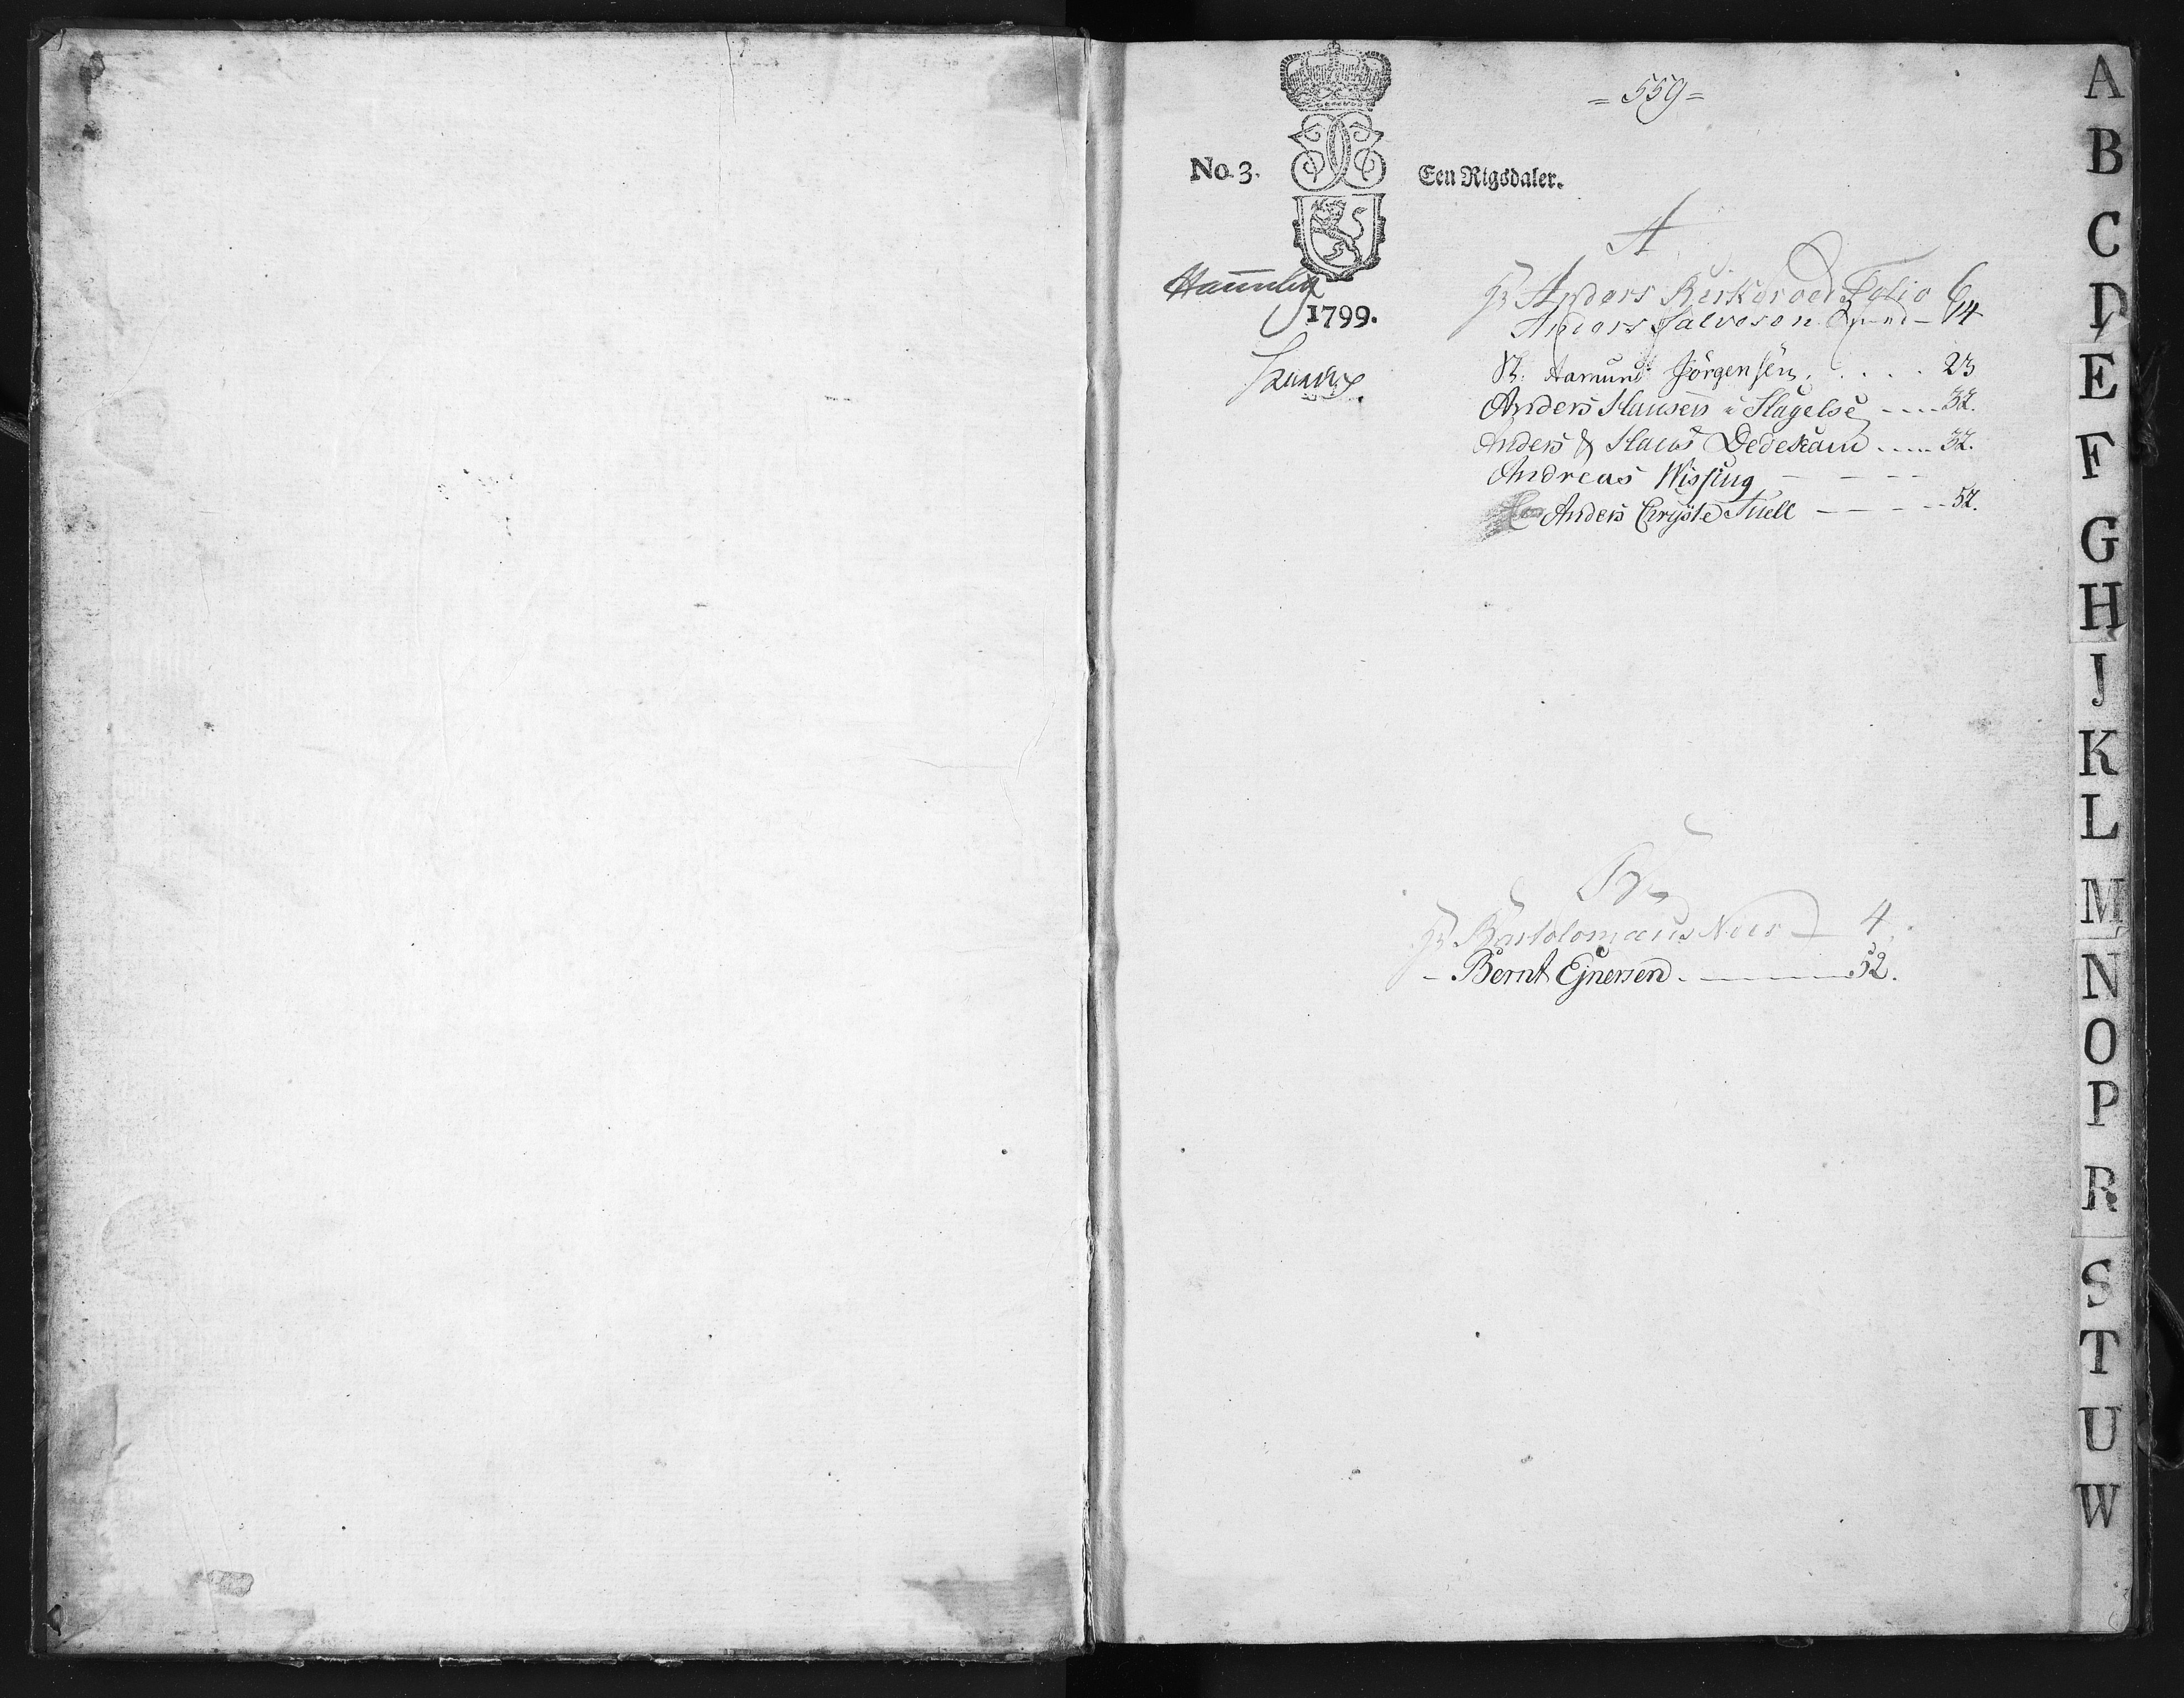 = 559 =
No. 3.
Een Rigsdaler.
1799.
A
Anders Birkeroed Folio 6
Anders Salveson 14
Aamund Jörgensen . . . . 23
Anders Hansen i Slagelse ---- 32.
Anders & Claus Dedekam ..... 32.
Andreas Wissing - - - -
Anders Chryste Tuell - - - - 52.
B
Bartolomæus 4
- Bernt Ejnersen. ——— 52.
A
B
C
D
E
F
G
H
J
K
L
M
N
O
P
R
S
T
U
W